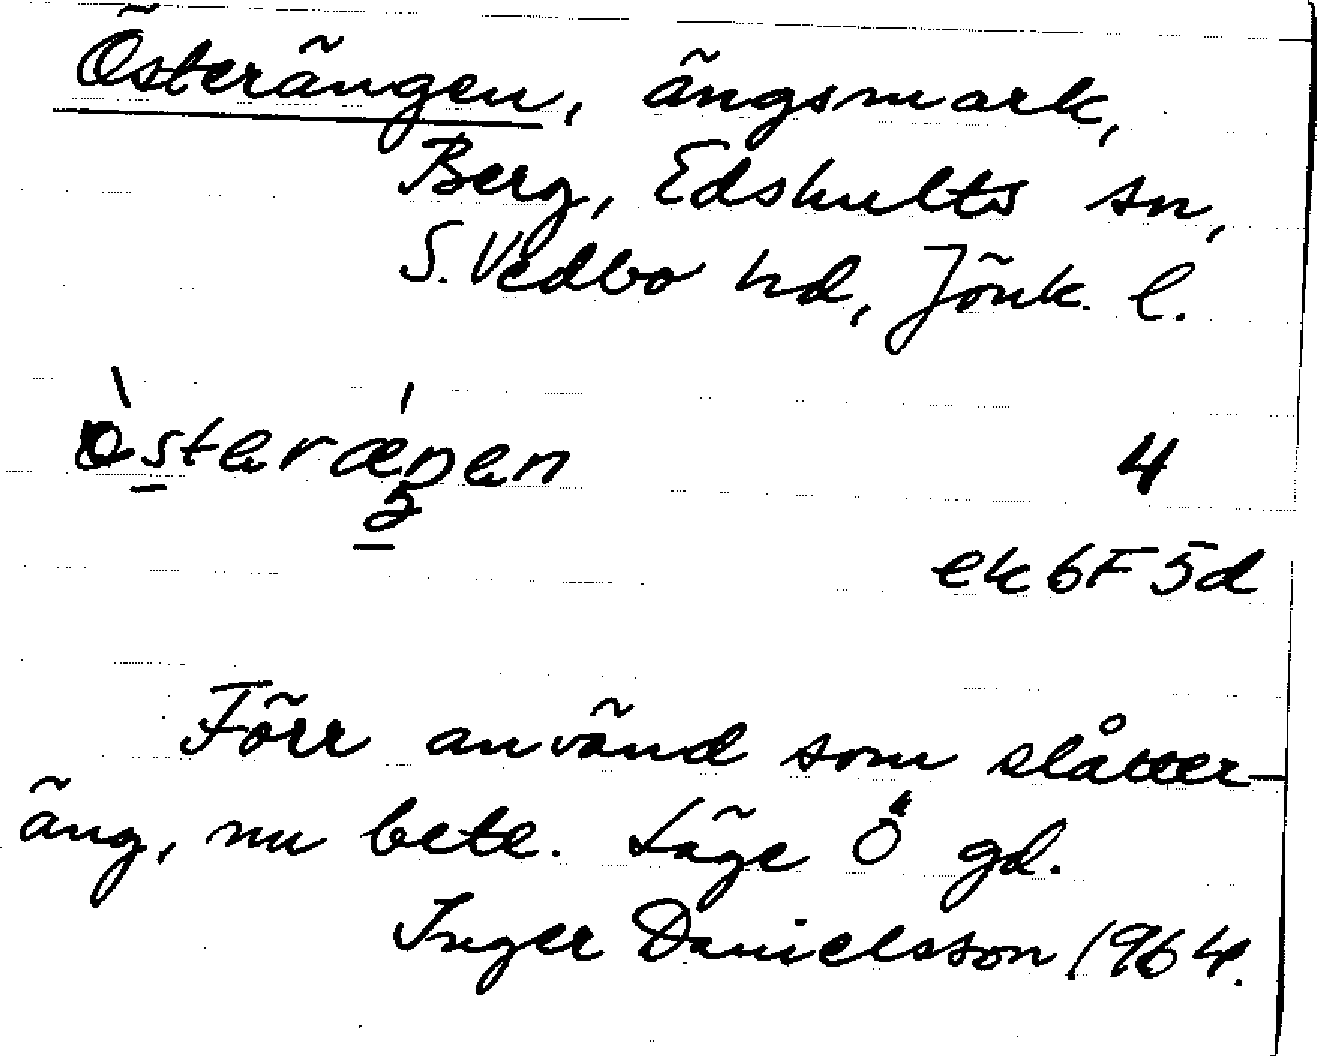 Österängen, ängsmark,
Berg, Edshults sn,
S. Vedbo hd, Jönk. l.
4
ek 6F 5d
Förr använd som slåtter-
äng, nu bete. Läge Ö gd.
Inger Danielsson 1964.